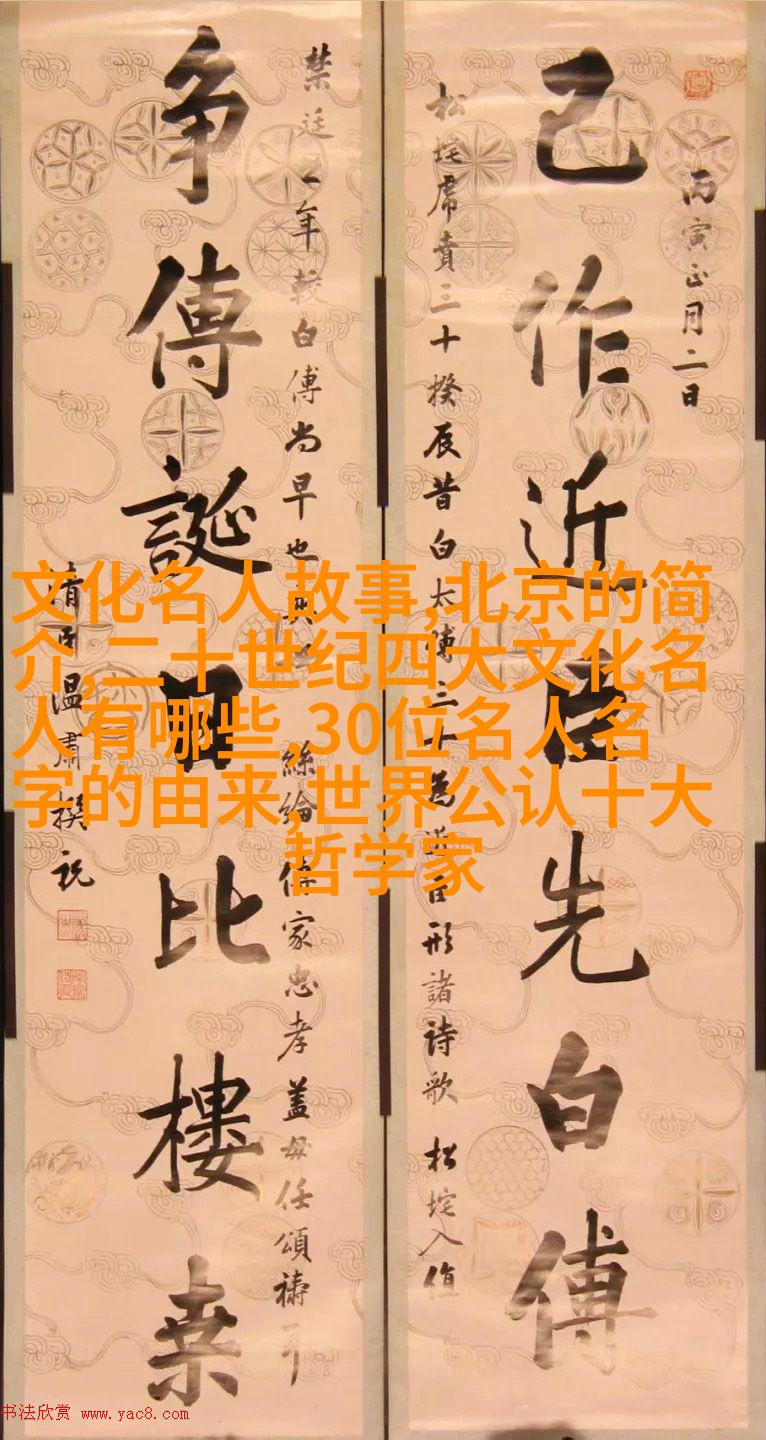 文化名人故事,北京的简
介,二十世纪四大文化名
人有哪些,30位名人名
字的由来,世界公认十大
哲学家
丙寅正月二日
己作近臣先白傅
松垞席賁三十揆辰昔白太傅三十為近臣形諸詩歌 松垞入值
禁廷五年較白傅尚早也
絲綸 傳家忠孝蓋毋任頌禱耳
争傳誕日比樓桑
温肅撰祝
书法欣赏 www.yac8.com